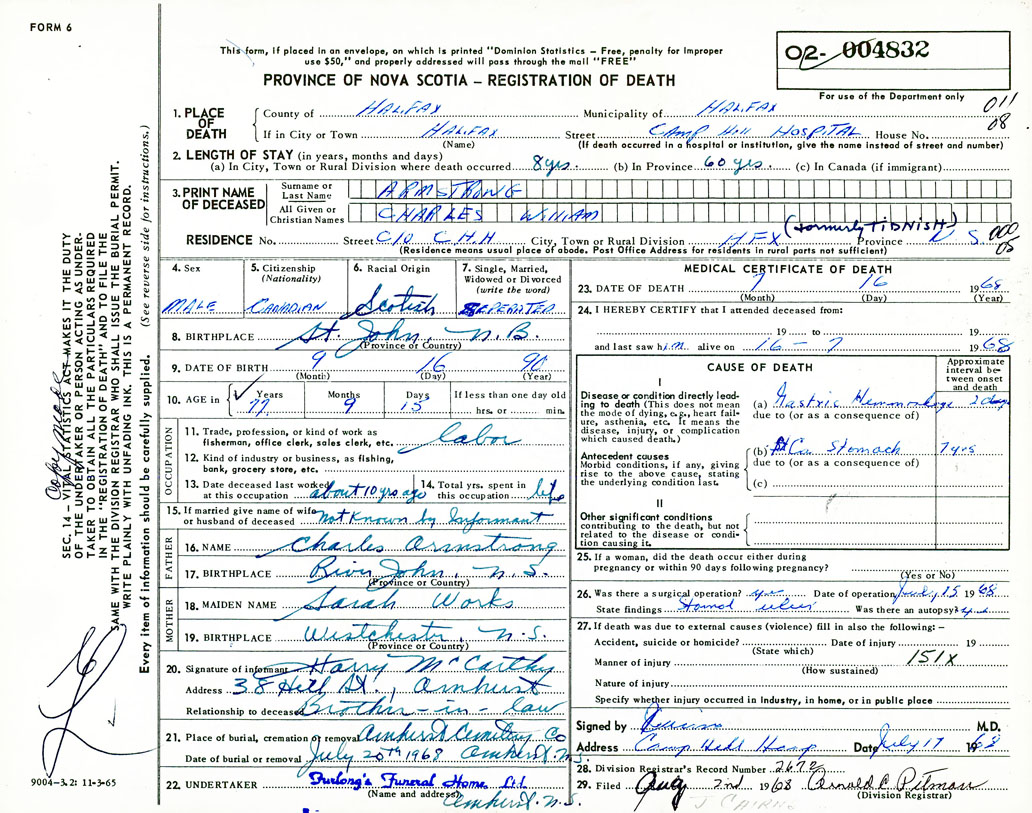 FORM 6
This form, if placed in an envelope, on which is printed "Dominion Statistics – Free, penalty for improper
use $50," and properly addressed will pass through the mail "FREE"
02- 004832
PROVINCE OF NOVA SCOTIA – REGISTRATION OF DEATH
For use of the Department only
011
08
1. PLACE OF DEATH
County of HALIFAX Municipality of HALIFAX
If in City or Town HALIFAX Street CAMP HILL HOSPITAL House No.
(Name) (If death occurred in a hospital or institution, give the name instead of street and number)
2. LENGTH OF STAY (in years, months and days)
(a) In City, Town or Rural Division where death occurred 8 yrs. (b) In Province 60 yrs. (c) In Canada (if immigrant)
3. PRINT NAME OF DECEASED
Surname or Last Name ARMSTRONG
All Given or Christian Names CHARLES WILLIAM
(formerly TIDNISH)
RESIDENCE No. Street C/O C.H.H City, Town or Rural Division HFX Province N.S.
000
05
(Residence means usual place of abode. Post Office Address for residents in rural parts not sufficient)
4. Sex
MALE
5. Citizenship
(Nationality)
CANADIAN
6. Racial Origin
Scotish
7. Single, Married,
Widowed or Divorced
(write the word)
SEPERATED
8. BIRTHPLACE St. John, N.B.
(Province or Country)
9. DATE OF BIRTH 9 16 90
(Month) (Day) (Year)
10. AGE in Years Months Days If less than one day old
77 9 15 hrs. or min.
OCCUPATION
11. Trade, profession, or kind of work as
fisherman, office clerk, sales clerk, etc. labor
12. Kind of industry or business, as fishing,
bank, grocery store, etc.
13. Date deceased last worked
at this occupation about 10 yrs ago
14. Total yrs. spent in
this occupation life
15. If married give name of wife
or husband of deceased Not Known by Informant
FATHER
16. NAME Charles Armstrong
17. BIRTHPLACE River John, N.S.
(Province or Country)
MOTHER
18. MAIDEN NAME Sarah Works
19. BIRTHPLACE Westchester, N.S.
(Province or Country)
20. Signature of informant Harry McCarthy
Address 38 St., Amherst
Relationship to deceased Brother-in-law
21. Place of burial, cremation or removal Amherst Cemetery Co
Date of burial or removal July 20th 1968 Amherst, N.S.
22. UNDERTAKER Furlong's Funeral Home, Ltd
(Name and address)
Amherst, N.S.
MEDICAL CERTIFICATE OF DEATH
23. DATE OF DEATH 7 16 1968
(Month) (Day) (Year)
24. I HEREBY CERTIFY that I attended deceased from:
19 to 19
and last saw him alive on 16 - 7 1968
CAUSE OF DEATH
Approximate
interval be-
tween onset
and death
I
Disease or condition directly lead-
ing to death (This does not mean
the mode of dying, e.g., heart fail-
ure, asthenia, etc. It means the
disease, injury, or complication
which caused death.)
(a) Gastric Hemorrhage 2 days
due to (or as a consequence of)
Antecedent causes
Morbid conditions, if any, giving
rise to the above cause, stating
the underlying condition last.
(b) Ca Stomach
due to (or as a consequence of)
(c)
II
Other significant conditions
contributing to the death, but not
related to the disease or condi-
tion causing it.
25. If a woman, did the death occur either during
pregnancy or within 90 days following pregnancy?
(Yes or No)
26. Was there a surgical operation? yes Date of operation July 15 1968
State findings ulcer Was there an autopsy?
27. If death was due to external causes (violence) fill in also the following: –
Accident, suicide or homicide? Date of injury 19
(State which)
Manner of injury 151X
(How sustained)
Nature of injury
Specify whether injury occurred in Industry, in home, or in public place
Signed by M.D.
Address Camp Hill Hosp Date July 17 1968
28. Division Registrar's Record Number 2672
29. Filed Aug 2nd 1968 Ronald C Pitman
(Division Registrar)
SEC. 14 – VITAL STATISTICS ACT MAKES IT THE DUTY
OF THE UNDERTAKER OR PERSON ACTING AS UNDER-
TAKER TO OBTAIN ALL THE PARTICULARS REQUIRED
IN THE "REGISTRATION OF DEATH" AND TO FILE THE
SAME WITH THE DIVISION REGISTRAR WHO SHALL ISSUE THE BURIAL PERMIT.
WRITE PLAINLY WITH UNFADING INK. THIS IS A PERMANENT RECORD.
Every item of information should be carefully supplied. (See reverse side for instructions.)
Copy made
9004–3.2: 11-3-65